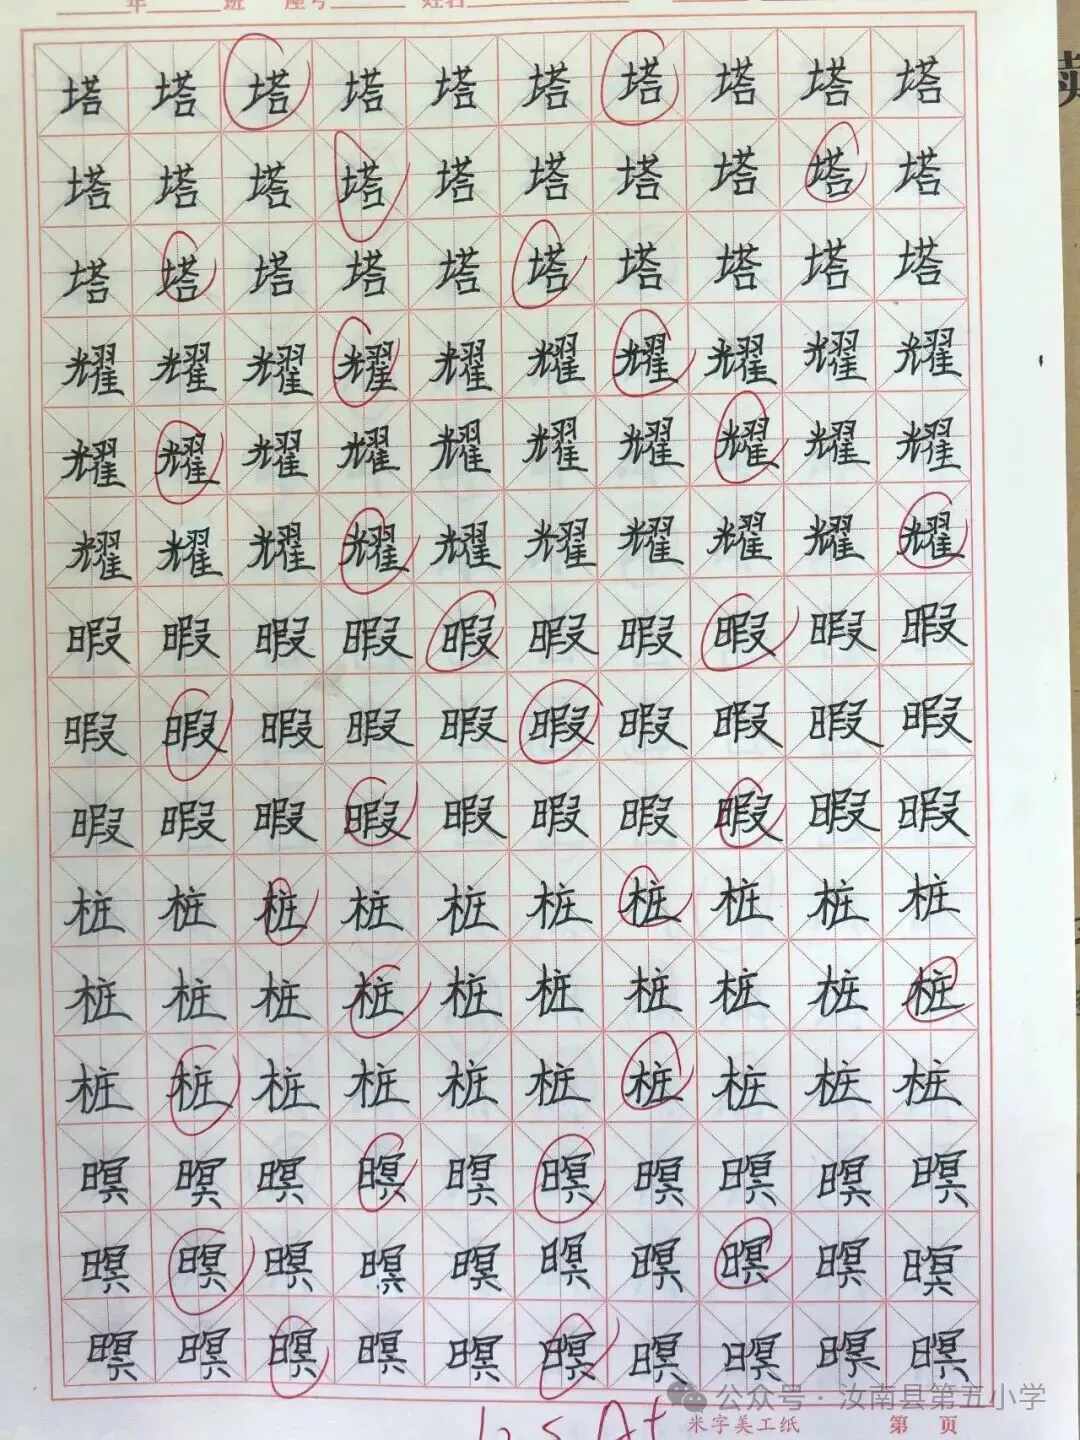 年 班 座号 姓名
塔 塔 塔 塔 塔 塔 塔 塔 塔 塔
塔 塔 塔 塔 塔 塔 塔 塔 塔 塔
塔 塔 塔 塔 塔 塔 塔 塔 塔 塔
耀 耀 耀 耀 耀 耀 耀 耀 耀 耀
耀 耀 耀 耀 耀 耀 耀 耀 耀 耀
耀 耀 耀 耀 耀 耀 耀 耀 耀 耀
暇 暇 暇 暇 暇 暇 暇 暇 暇 暇
暇 暇 暇 暇 暇 暇 暇 暇 暇 暇
暇 暇 暇 暇 暇 暇 暇 暇 暇 暇
桩 桩 桩 桩 桩 桩 桩 桩 桩 桩
桩 桩 桩 桩 桩 桩 桩 桩 桩 桩
桩 桩 桩 桩 桩 桩 桩 桩 桩 桩
暝 暝 暝 暝 暝 暝 暝 暝 暝 暝
暝 暝 暝 暝 暝 暝 暝 暝 暝 暝
暝 暝 暝 暝 暝 暝 暝 暝 暝 暝
公众号·汝南县第五小学
米字美工纸 第 页